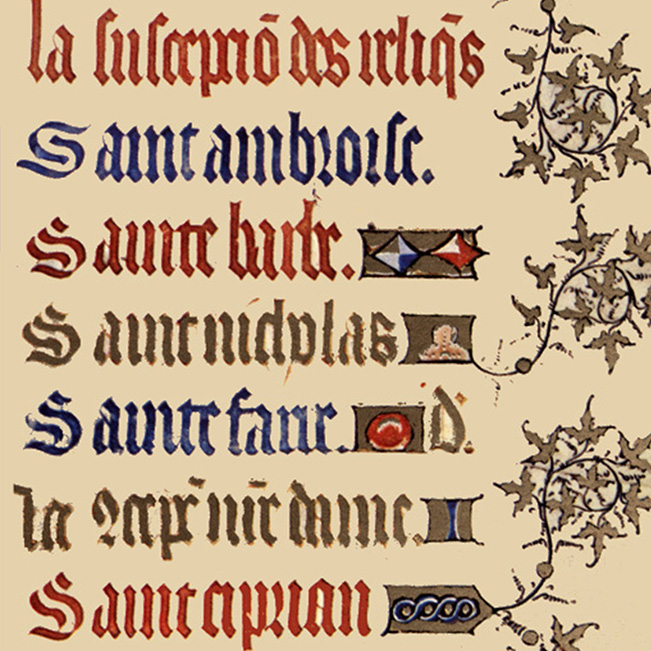 la suscepciō des reliq̄s
Saint ambroise.
Sainte barbe.
Saint nicholas
Sainte fare. d.
la ꝯcep̄ nr̄e dame.
Saint ciprian